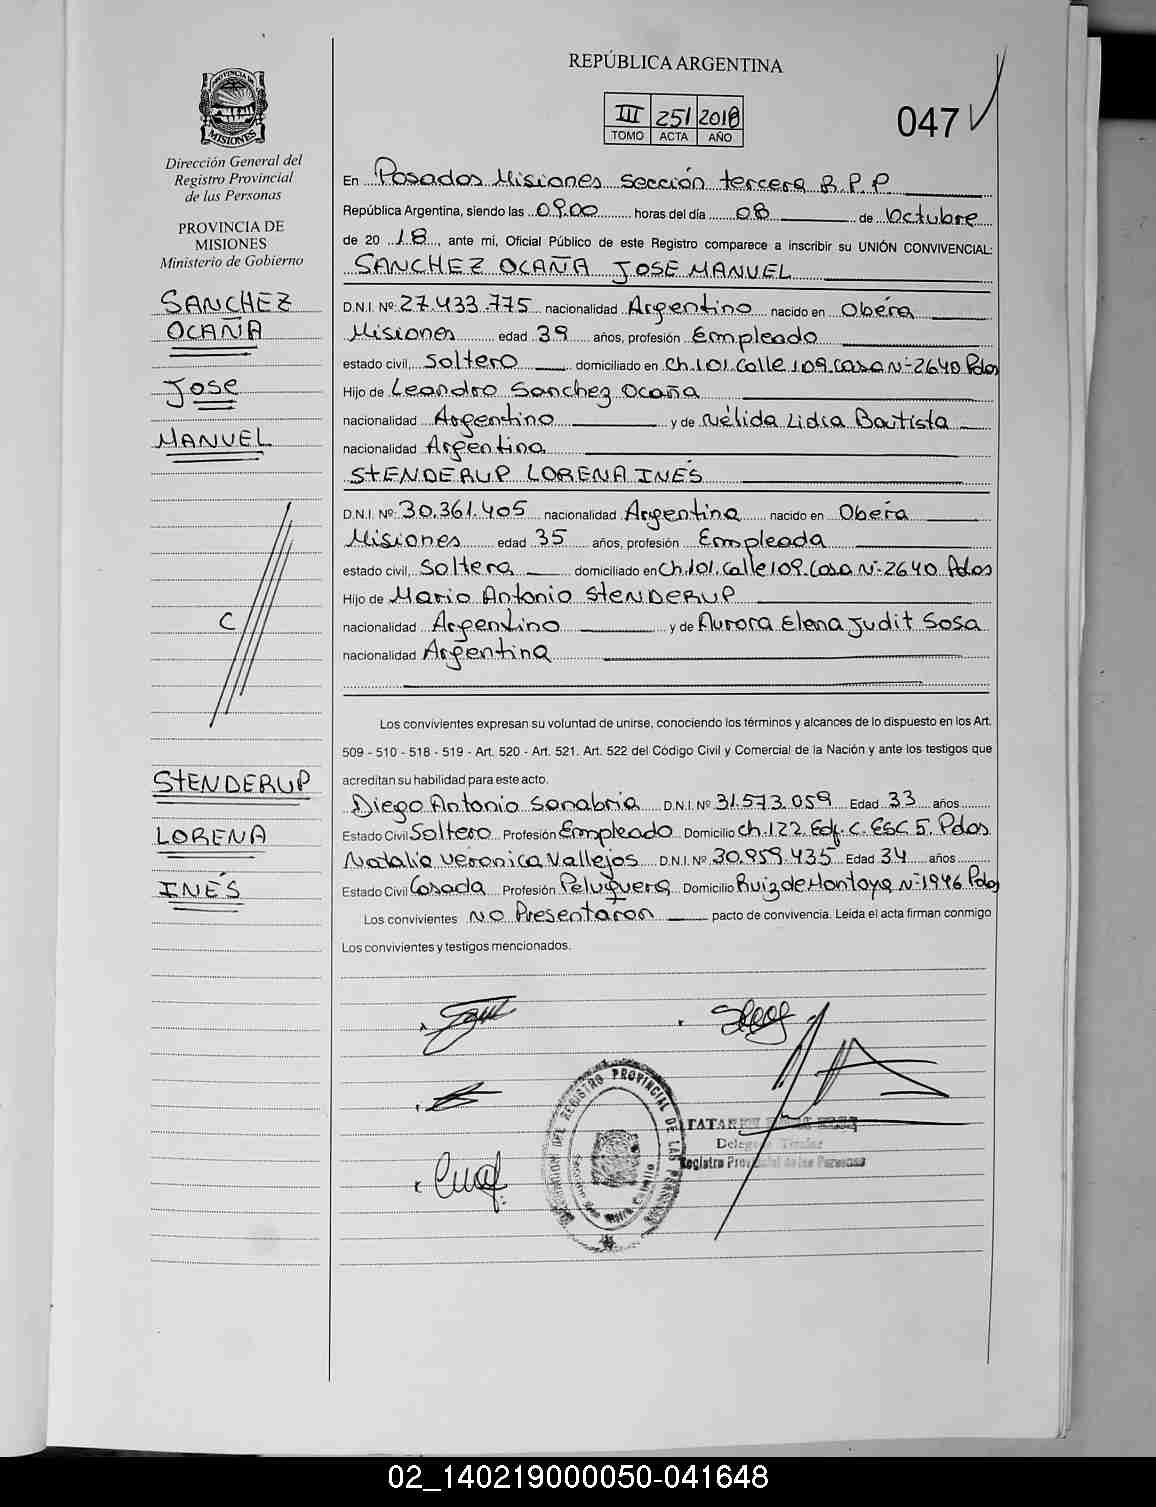 REPÚBLICA ARGENTINA
III 251 2018
TOMO ACTA AÑO
047
PROVINCIA DE
MISIONES
Dirección General del
Registro Provincial
de las Personas
PROVINCIA DE
MISIONES
Ministerio de Gobierno
SANCHEZ
OCAÑA
JOSE
MANUEL
C
STENDERUP
LORENA
INÉS
En Posadas Misiones sección tercera R.P.P
República Argentina, siendo las 09.00 horas del día 08 de Octubre
de 20 18, ante mi, Oficial Público de este Registro comparece a inscribir su UNIÓN CONVIVENCIAL:
SANCHEZ OCAÑA JOSE MANUEL
D.N.I. Nº 27.433.775 nacionalidad Argentino nacido en Oberá
Misiones edad 39 años, profesión Empleado
estado civil, Soltero domiciliado en Ch.101.Calle 109.Casa Nº-2640 Pdas
Hijo de Leandro Sanchez Ocaña
nacionalidad Argentino y de Nélida Lidia Bautista
nacionalidad Argentina
STENDERUP LORENA INÉS
D.N.I. Nº: 30.361.405 nacionalidad Argentina nacido en Oberá
Misiones edad 35 años, profesión Empleada
estado civil, Soltera domiciliado en Ch.101.Calle 109.Casa Nº-2640 Pdas
Hijo de Mario Antonio STENDERUP
nacionalidad Argentino y de Aurora Elena Judit Sosa
nacionalidad Argentina
Los convivientes expresan su voluntad de unirse, conociendo los términos y alcances de lo dispuesto en los Art.
509 - 510 - 518 - 519 - Art. 520 - Art. 521. Art. 522 del Código Civil y Comercial de la Nación y ante los testigos que
acreditan su habilidad para este acto.
Diego Antonio Sanabria D.N.I. Nº 31.573.059 Edad 33 años
Estado Civil Soltero Profesión Empleado Domicilio Ch.122.Edf.C.ESC 5. Pdas
Natalia Veronica Vallejos D.N.I. Nº 30.959.435 Edad 34 años
Estado Civil Casada Profesión Peluquera Domicilio Ruiz de Montoya Nº-1946 Pdas
Los convivientes NO Presentaron pacto de convivencia. Leída el acta firman conmigo
Los convivientes y testigos mencionados.
DEL REGISTRO PROVINCIAL DE LAS PERSONAS
Registro Provincial de las Personas
02_140219000050-041648